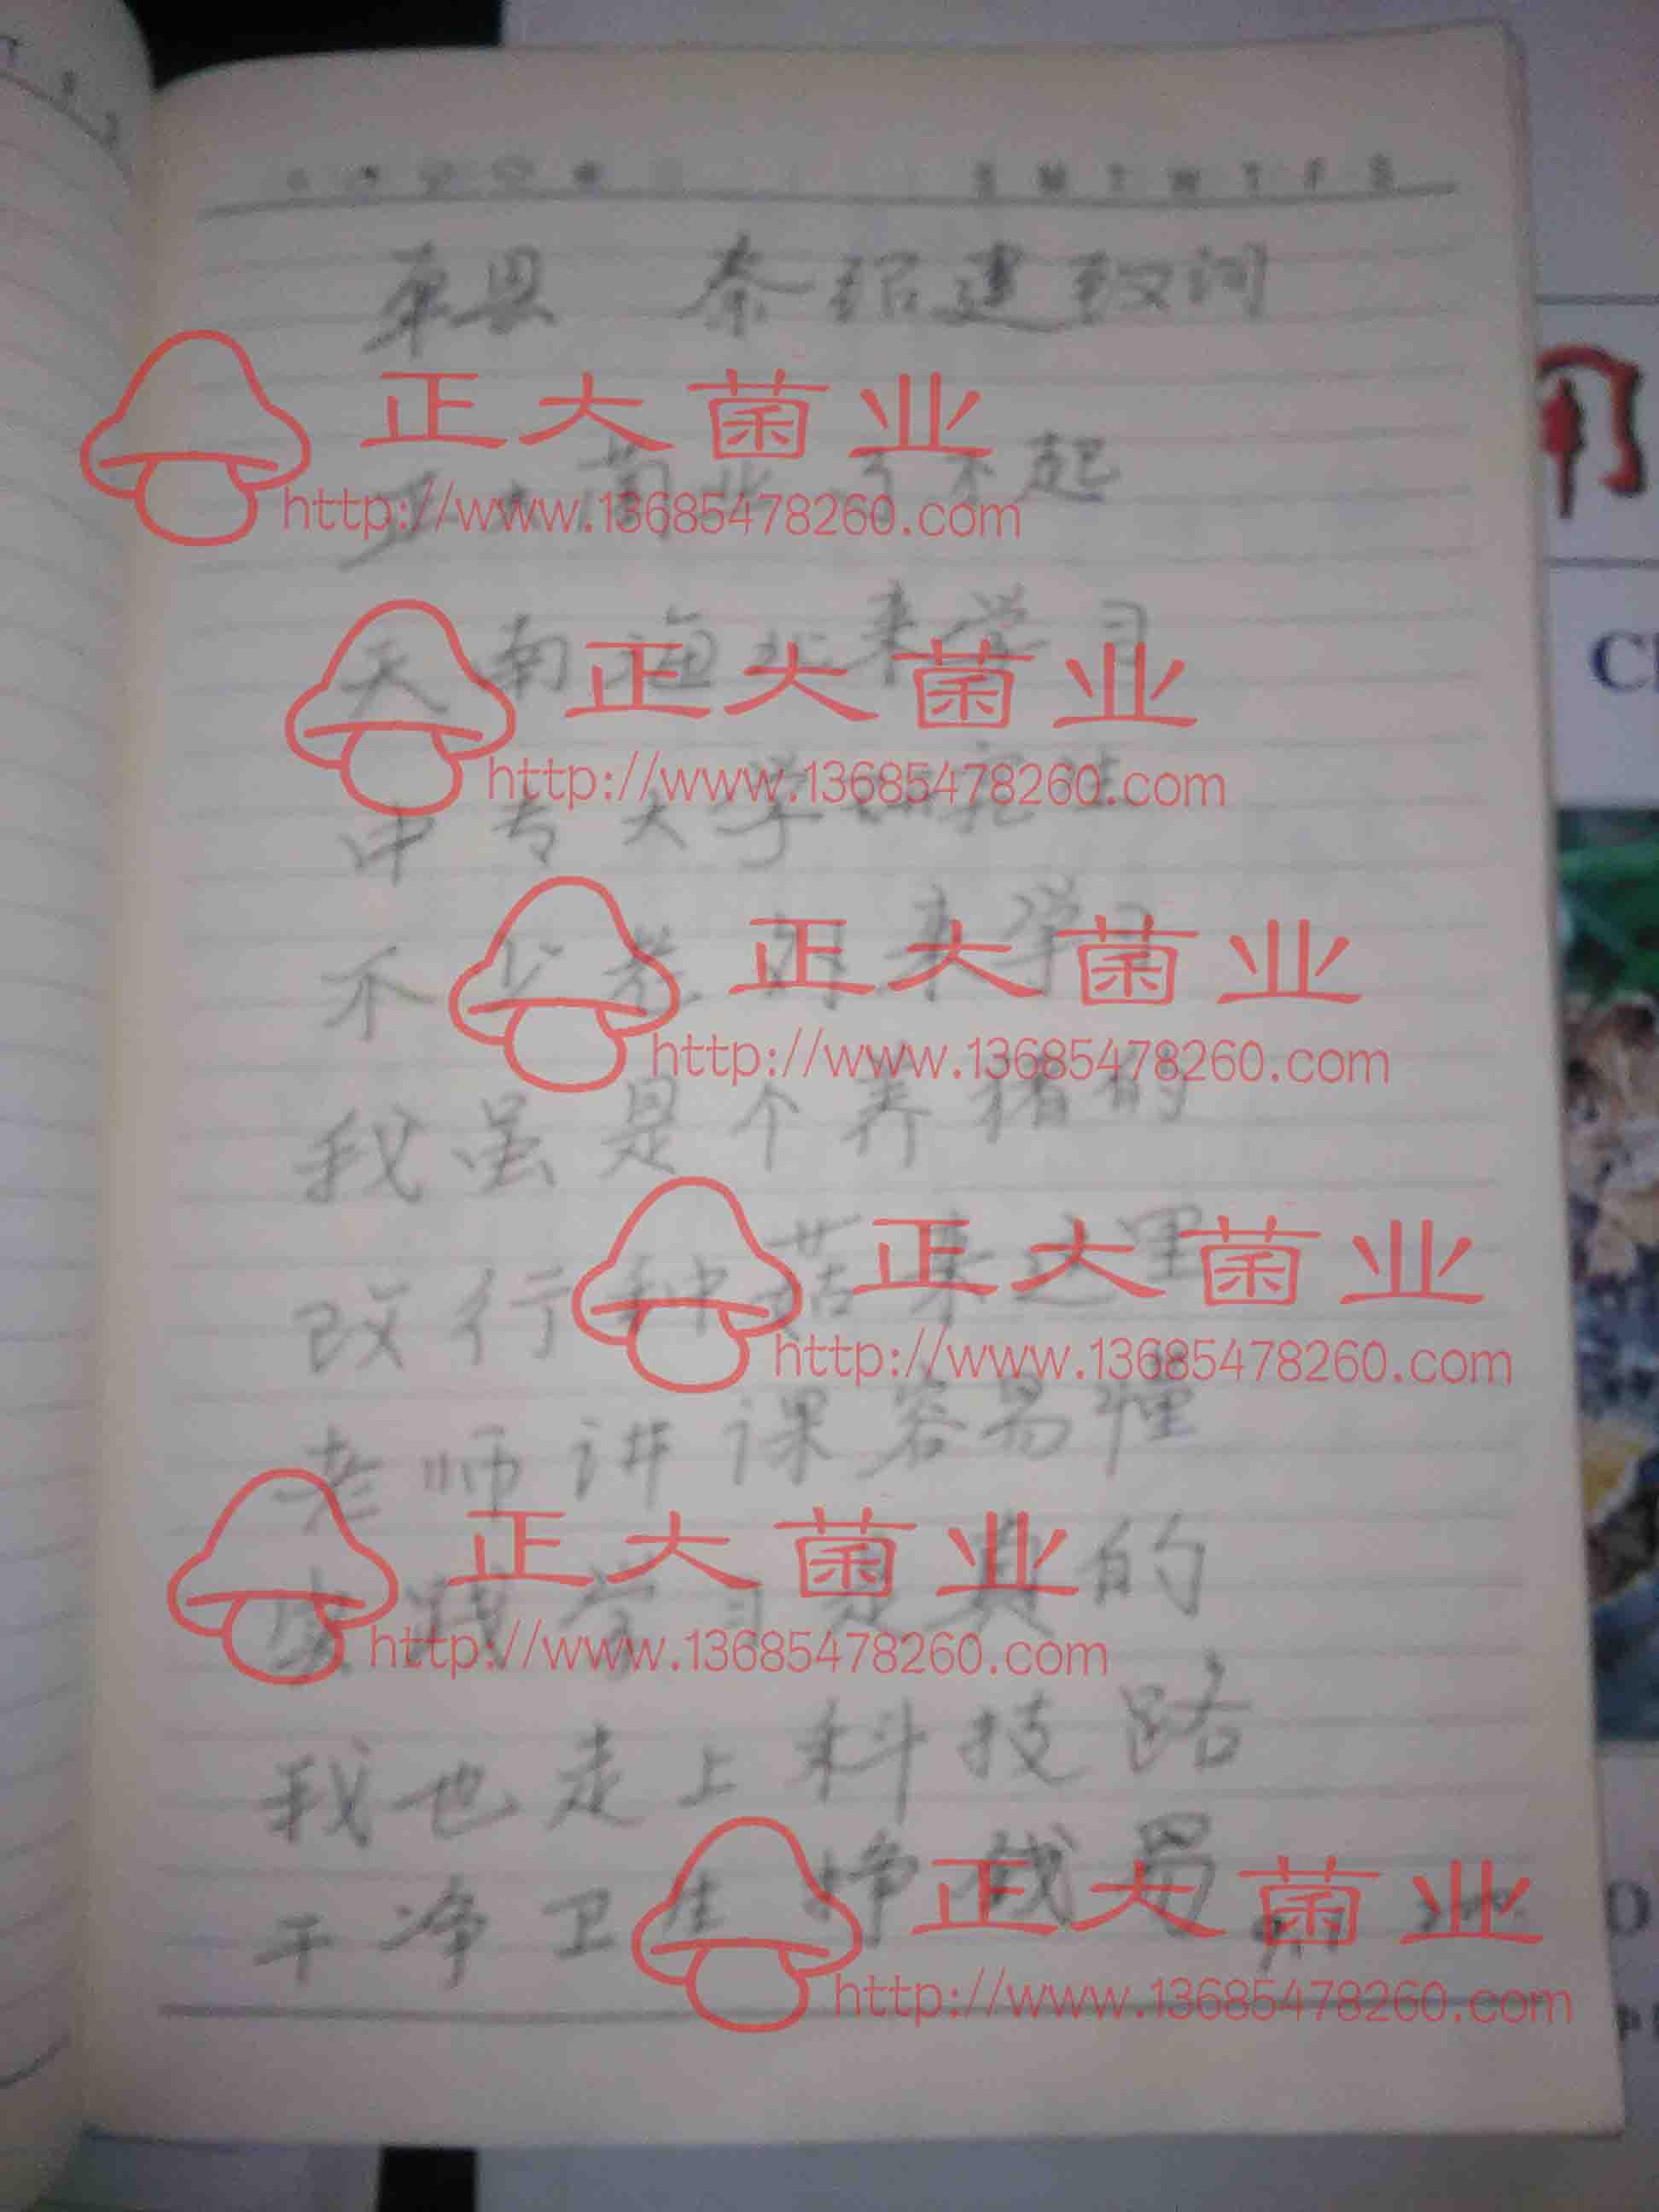 S M T W T F S
单县 秦绍建致词
正大菌业
正大菌业了不起
http://www.13685478260.com
天南海北来学习
正大菌业
http://www.13685478260.com
中专大学研究生
不少慕名来学习
正大菌业
http://www.13685478260.com
我虽是个养猪的
改行种菇来这里
正大菌业
http://www.13685478260.com
老师讲课容易懂
正大菌业
实践学习是真的
http://www.13685478260.com
我也走上科技路
干净卫生挣钱易
正大菌业
http://www.13685478260.com